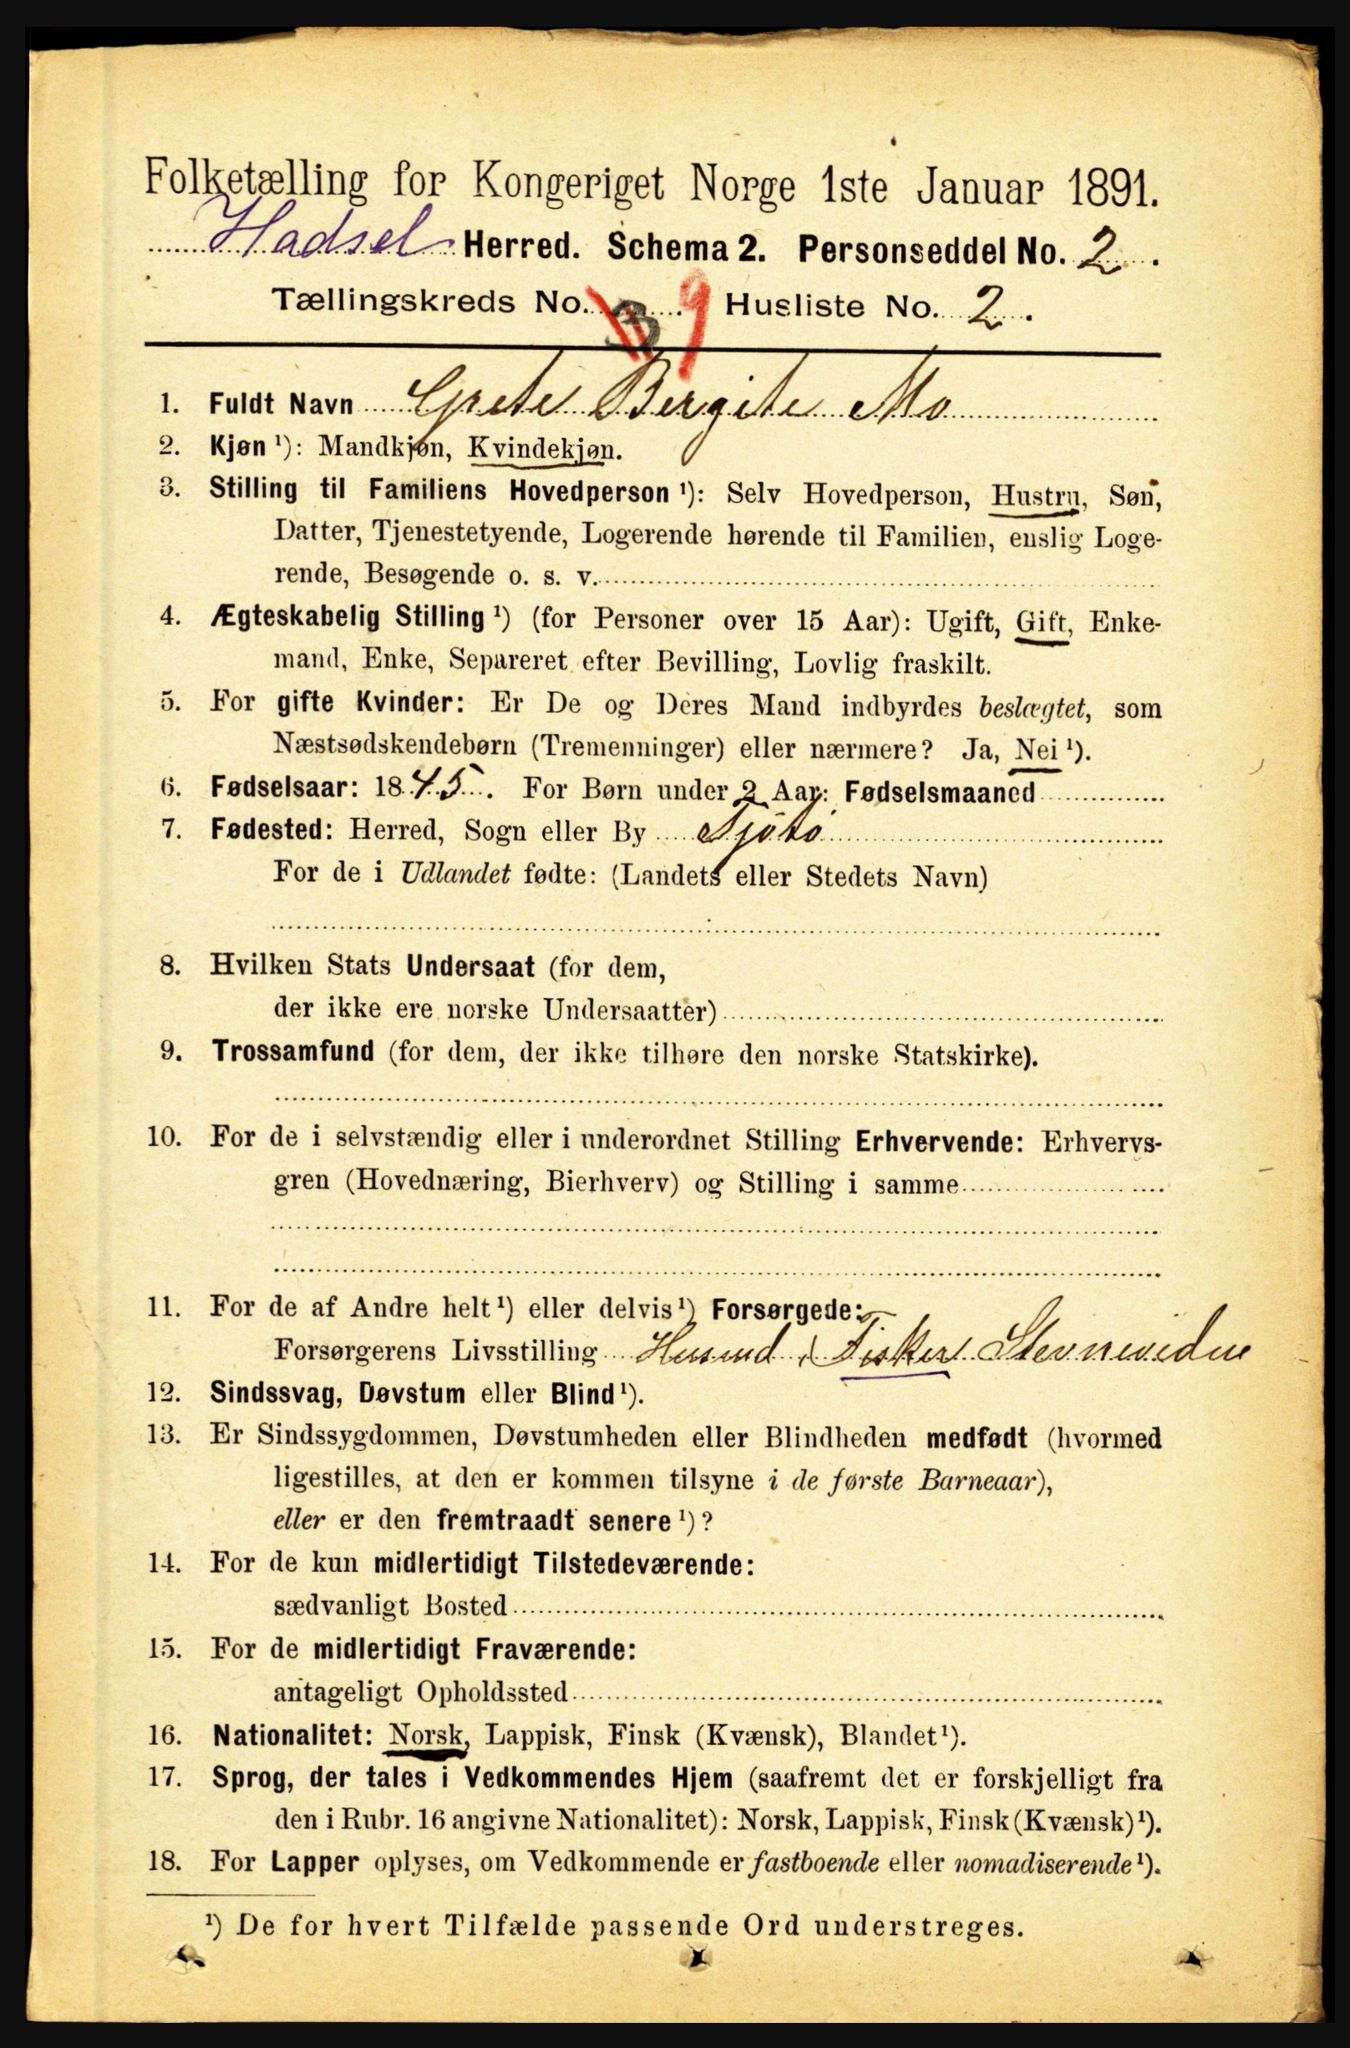 Folketælling for Kongeriget Norge 1ste Januar 1891.
Hadsel Herred. Schema 2. Personseddel No. 2.
Tællingskreds No. 9 Husliste No. 2.
1. Fuldt Navn Grete Bergite Mo
2. Kjøn ¹): Mandkjøn, Kvindekjøn.
3. Stilling til Familiens Hovedperson ¹): Selv Hovedperson, Hustru, Søn,
Datter, Tjenestetyende, Logerende hørende til Familien, enslig Loge-
rende, Besøgende o. s. v.
4. Ægteskabelig Stilling ¹) (for Personer over 15 Aar): Ugift, Gift, Enke-
mand, Enke, Separeret efter Bevilling, Lovlig fraskilt.
5. For gifte Kvinder: Er De og Deres Mand indbyrdes beslægtet, som
Næstsødskendebørn (Tremenninger) eller nærmere? Ja, Nei ¹).
6. Fødselsaar: 1845. For Børn under 2 Aar: Fødselsmaaned
7. Fødested: Herred, Sogn eller By Tjøtø
For de i Udlandet fødte: (Landets eller Stedets Navn)
8. Hvilken Stats Undersaat (for dem,
der ikke ere norske Undersaatter)
9. Trossamfund (for dem, der ikke tilhøre den norske Statskirke).
10. For de i selvstændig eller i underordnet Stilling Erhvervende: Erhvervs-
gren (Hovednæring, Bierhverv) og Stilling i samme
11. For de af Andre helt ¹) eller delvis ¹) Forsørgede:
Forsørgerens Livsstilling Husmd, Fisker
12. Sindssvag, Døvstum eller Blind ¹).
13. Er Sindssygdommen, Døvstumheden eller Blindheden medfødt (hvormed
ligestilles, at den er kommen tilsyne i de første Barneaar),
eller er den fremtraadt senere ¹)?
14. For de kun midlertidigt Tilstedeværende:
sædvanligt Bosted
15. For de midlertidigt Fraværende:
antageligt Opholdssted
16. Nationalitet: Norsk, Lappisk, Finsk (Kvænsk), Blandet ¹).
17. Sprog, der tales i Vedkommendes Hjem (saafremt det er forskjelligt fra
den i Rubr. 16 angivne Nationalitet): Norsk, Lappisk, Finsk (Kvænsk) ¹).
18. For Lapper oplyses, om Vedkommende er fastboende eller nomadiserende ¹).
¹) De for hvert Tilfælde passende Ord understreges.